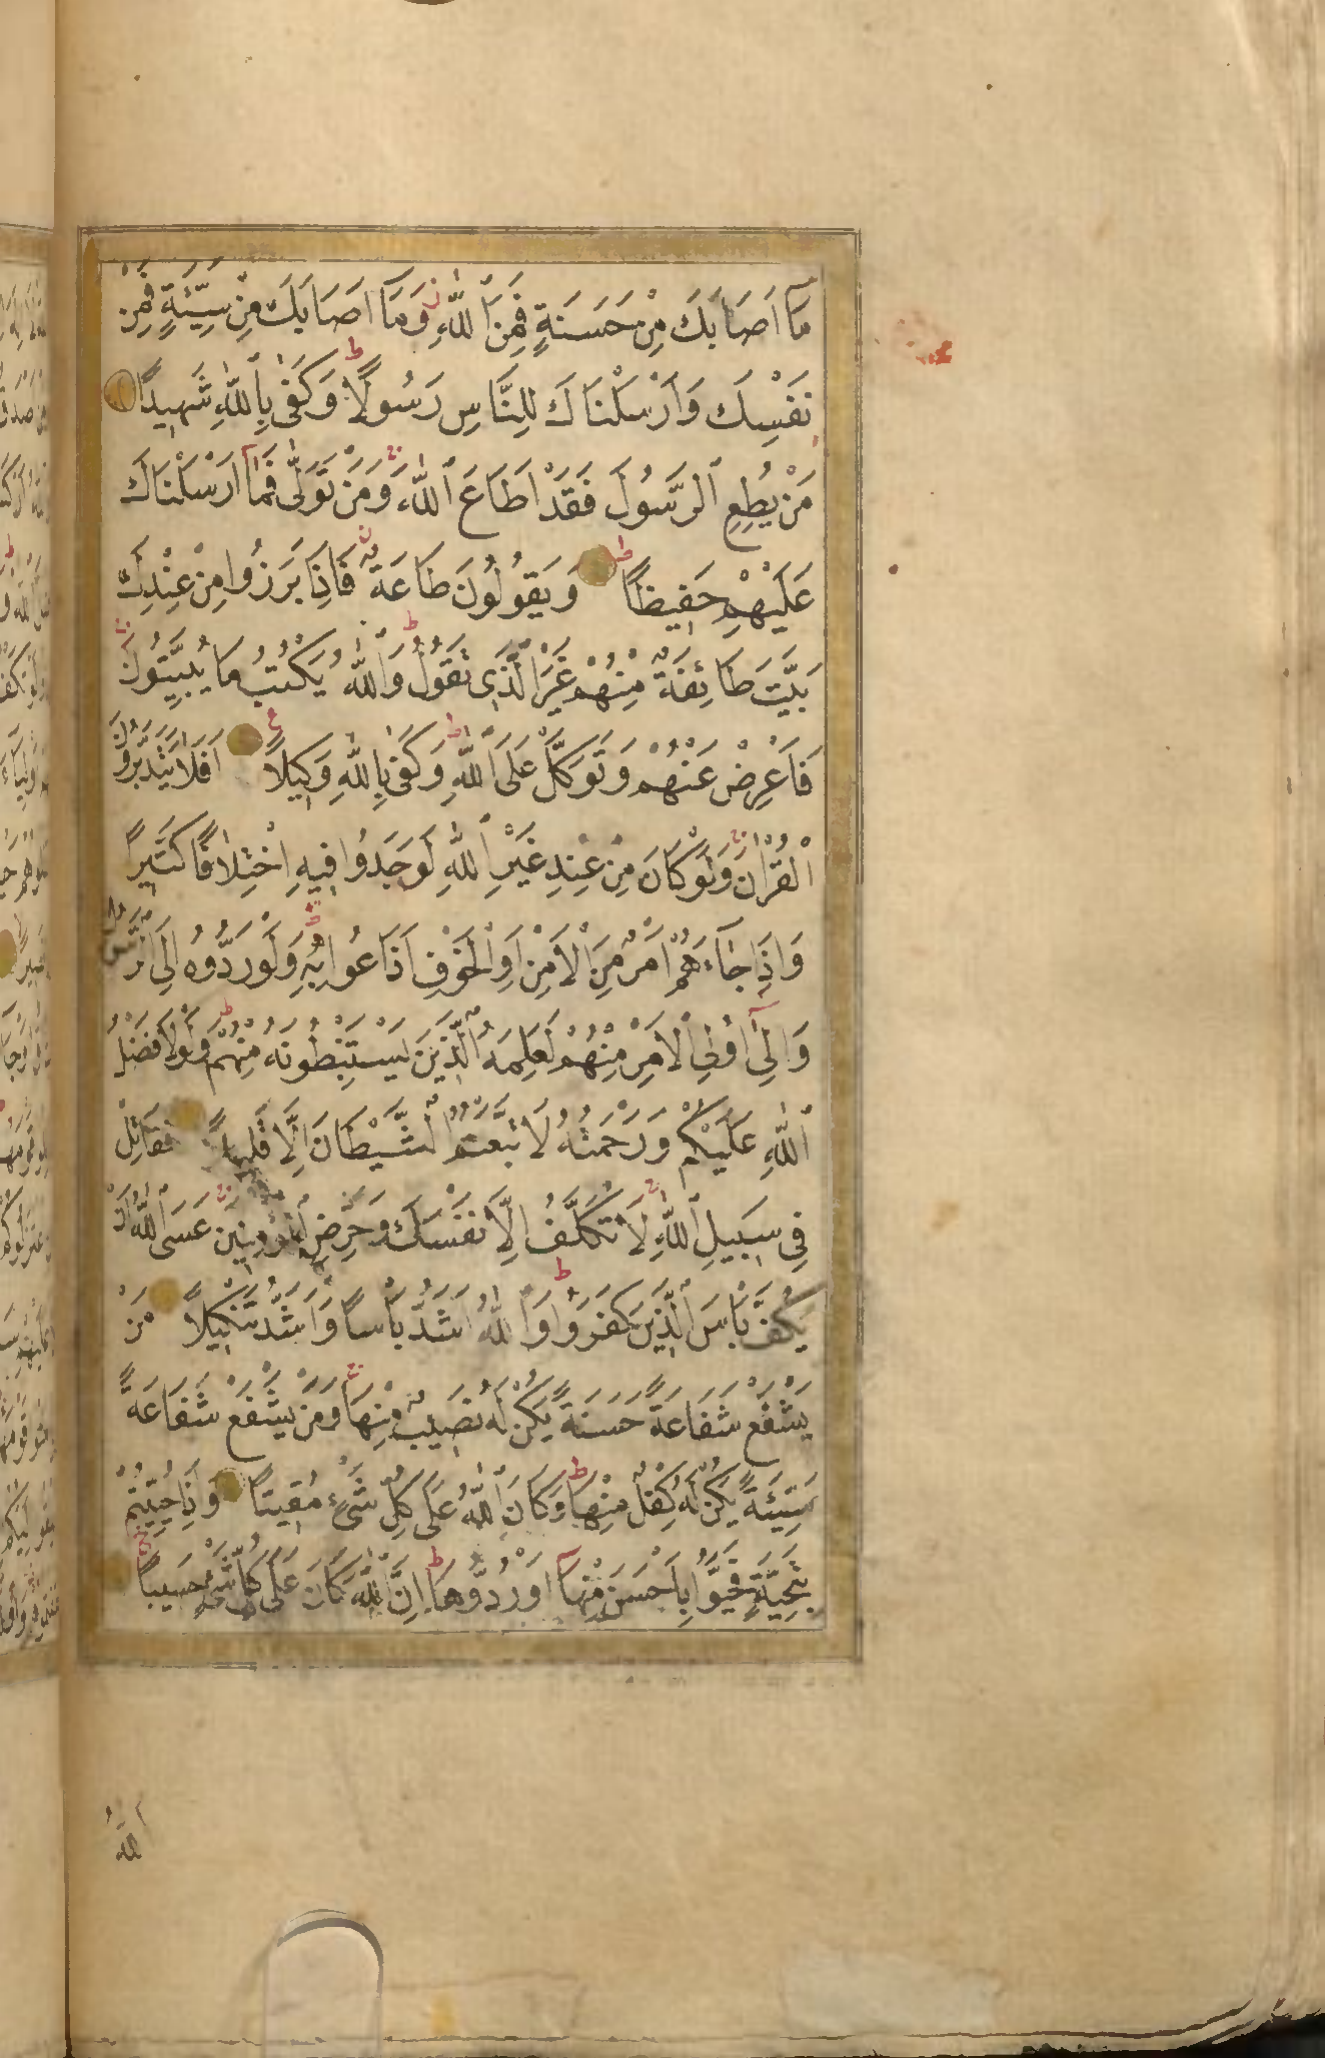 مَآ اَصَابَكَ مِنْ حَسَنَةٍ فَمِنَ ٱللّٰهِ وَمَآ اَصَابَكَ مِنْ سَيِّئَةٍ فَمِنْ
نَفْسِكَ وَاَرْسَلْنَاكَ لِلنَّاسِ رَسُولًا وَكَفٰى بِٱللّٰهِ شَهِيدًا
مَنْ يُطِعِ ٱلرَّسُولَ فَقَدْ اَطَاعَ ٱللّٰهَ وَمَنْ تَوَلّٰى فَمَآ اَرْسَلْنَاكَ
عَلَيْهِمْ حَفِيظًا وَيَقُولُونَ طَاعَةٌ فَاِذَا بَرَزُوا مِنْ عِنْدِكَ
بَيَّتَ طَائِفَةٌ مِنْهُمْ غَيْرَ ٱلَّذِى تَقُولُ وَٱللّٰهُ يَكْتُبُ مَا يُبَيِّتُونَ
فَاَعْرِضْ عَنْهُمْ وَتَوَكَّلْ عَلَى ٱللّٰهِ وَكَفٰى بِاللّٰهِ وَكِيلًا اَفَلَا يَتَدَبَّرُونَ
الْقُرْاٰنَ وَلَوْ كَانَ مِنْ عِنْدِ غَيْرِ ٱللّٰهِ لَوَجَدُوا فِيهِ اخْتِلَافًا كَثِيرًا
وَاِذَا جَآءَهُمْ اَمْرٌ مِنَ الْاَمْنِ اَوِ الْخَوْفِ اَذَاعُوا بِهِ وَلَوْ رَدُّوهُ اِلَى الرَّسُولِ
وَاِلٰٓى اُو۬لِى الْاَمْرِ مِنْهُمْ لَعَلِمَهُ ٱلَّذِينَ يَسْتَنْبِطُونَهُ مِنْهُمْ وَلَوْلَا فَضْلُ
ٱللّٰهِ عَلَيْكُمْ وَرَحْمَتُهُ لَاتَّبَعْتُمُ ٱلشَّيْطَانَ اِلَّا قَلِيلًا فَقَاتِلْ
فِى سَبِيلِ ٱللّٰهِ لَا تُكَلَّفُ اِلَّا نَفْسَكَ وَحَرِّضِ ٱلْمُؤْمِنِينَ عَسَى ٱللّٰهُ اَنْ
يَكُفَّ بَاْسَ ٱلَّذِينَ كَفَرُوا وَٱللّٰهُ اَشَدُّ بَاْسًا وَاَشَدُّ تَنْكِيلًا مَنْ
يَشْفَعْ شَفَاعَةً حَسَنَةً يَكُنْ لَهُ نَصِيبٌ مِنْهَا وَمَنْ يَشْفَعْ شَفَاعَةً
سَيِّئَةً يَكُنْ لَهُ كِفْلٌ مِنْهَا وَكَانَ ٱللّٰهُ عَلٰى كُلِّ شَىْءٍ مُقِيتًا وَاِذَا حُيِّيتُمْ
بِتَحِيَّةٍ فَحَيُّوا بِاَحْسَنَ مِنْهَآ اَوْ رُدُّوهَا اِنَّ ٱللّٰهَ كَانَ عَلٰى كُلِّ شَىْءٍ حَسِيبًا
اَللّٰهُ